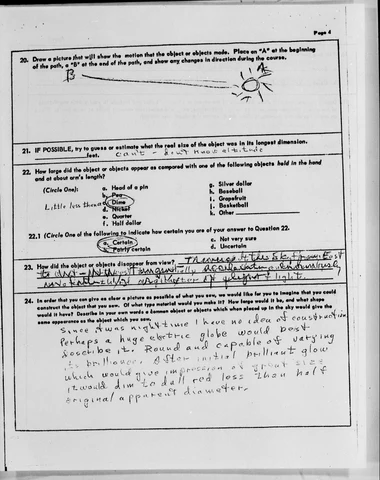 Page 4
20. Draw a picture that will show the motion that the object or objects made. Place an "A" at the beginning
of the path, a "B" at the end of the path, and show any changes in direction during the course.
B A
21. IF POSSIBLE, try to guess or estimate what the real size of the object was in its longest dimension.
feet. can't - don't know altitude
22. How large did the object or objects appear as compared with one of the following objects held in the hand
and at about arm's length?
(Circle One): a. Head of a pin g. Silver dollar
b. Pea h. Baseball
Little less than c. Dime i. Grapefruit
d. Nickel j. Basketball
e. Quarter k. Other
f. Half dollar
22.1 (Circle One of the following to indicate how certain you are of your answer to Question 22.
a. Certain c. Not very sure
b. Fairly certain d. Uncertain
23. How did the object or objects disappear from view? Traversed the sky from East
to West - accelerating
light.
24. In order that you can give as clear a picture as possible of what you saw, we would like for you to imagine that you could
construct the object that you saw. Of what type material would you make it? How large would it be, and what shape
would it have? Describe in your own words a common object or objects which when placed up in the sky would give the
same appearance as the object which you saw.
Since it was nighttime I have no idea of construction
Perhaps a huge electric globe would best
describe it. Round and capable of varying
its brilliance. After initial brilliant glow
which would give impression of great size
it would dim to dull red less than half
original apparent diameter.